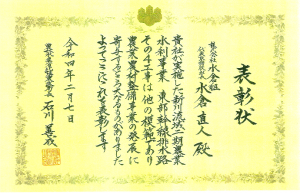 表彰状
株式会社水倉組
代表取締役 水倉直人 殿
貴社が実施した新川流域二期農業
水利事業 東部幹線排水路
その4工事は他の模範であり
農業農村整備事業の発展に
寄与するところ大なるものがありました
よってここにこれを表彰します
令和四年二月一日
石川善成